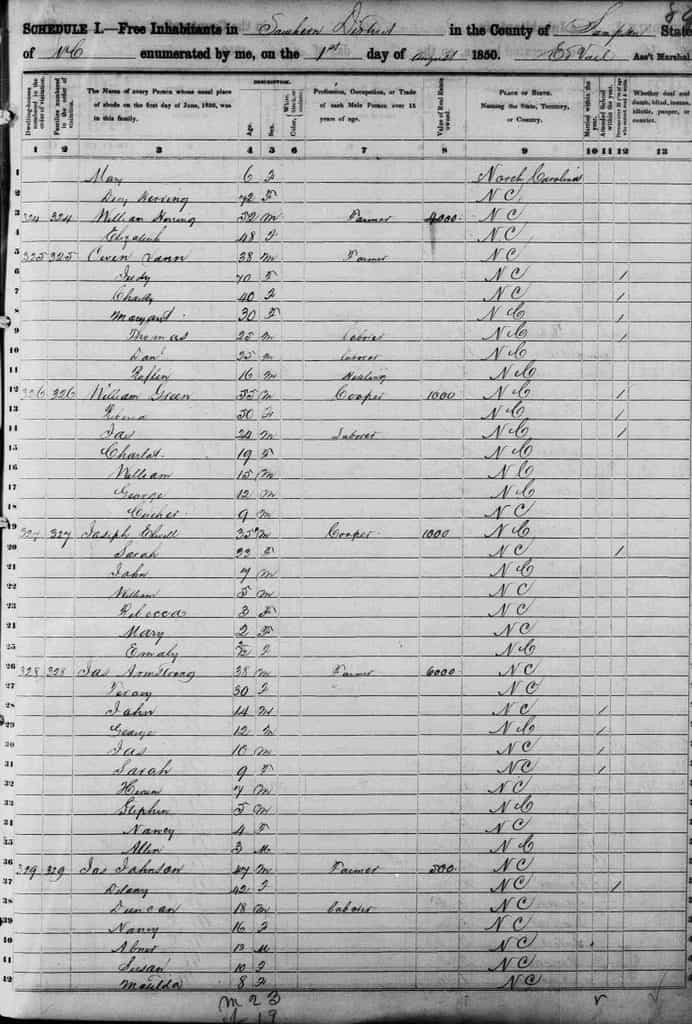 86
SCHEDULE I.—Free Inhabitants in Southern District in the County of Sampson State
of NC enumerated by me, on the 1st day of August 1850. Ass't Marshal.
Dwelling-houses numbered in the order of visitation.
Families numbered in the order of visitation.
The Name of every Person whose usual place of abode on the first day of June, 1850, was in this family.
DESCRIPTION.
Age.
Sex.
Color,
Profession, Occupation, or Trade of each Male Person over 15 years of age.
Value of Real Estate owned.
PLACE OF BIRTH. Naming the State, Territory, or Country.
Married within the year.
Attended School within the year.
Whether deaf and dumb, blind, insane, idiotic, pauper, or convict.
1 2 3 4 5 6 7 8 9 10 11 12 13
1 Mary 6 F North Carolina
2 Herring 72 F NC
3 324 324 William Herring 52 M Farmer NC
4 Elizabeth 48 F NC
5 325 325 Vann 38 M Farmer NC
6 70 F NC /
7 40 F NC /
8 Margaret 30 F NC /
9 Thomas 25 M Laborer NC /
10 25 M Laborer NC
11 16 M NC
12 326 326 William Green 55 M Cooper 1000 NC /
13 50 F NC /
14 Jas 24 M Laborer NC /
15 Charlot 19 F NC
16 William 15 M NC
17 George 12 M NC
18 9 M NC
19 327 327 Joseph 35 M Cooper 1000 NC
20 Sarah 33 F NC /
21 John 7 M NC
22 William 5 M NC
23 Rebecca 3 F NC
24 Mary 2 F NC
25 Emaly F NC
26 328 328 Jas Armstrong 38 M Farmer 6000 NC
27 30 F NC
28 John 14 M NC /
29 George 12 M NC /
30 Jas 10 M NC /
31 Sarah 9 F NC /
32 7 M NC
33 Stephen 5 M NC
34 Nancy 4 F NC
35 Allen 3 M NC
36 329 329 Jas Johnson 47 M Farmer 500 NC
37 42 F NC /
38 Duncan 18 M Laborer NC
39 Nancy 16 F NC
40 Abner 13 M NC
41 Susan 10 F NC
42 Matilda 8 F NC
M 23
19